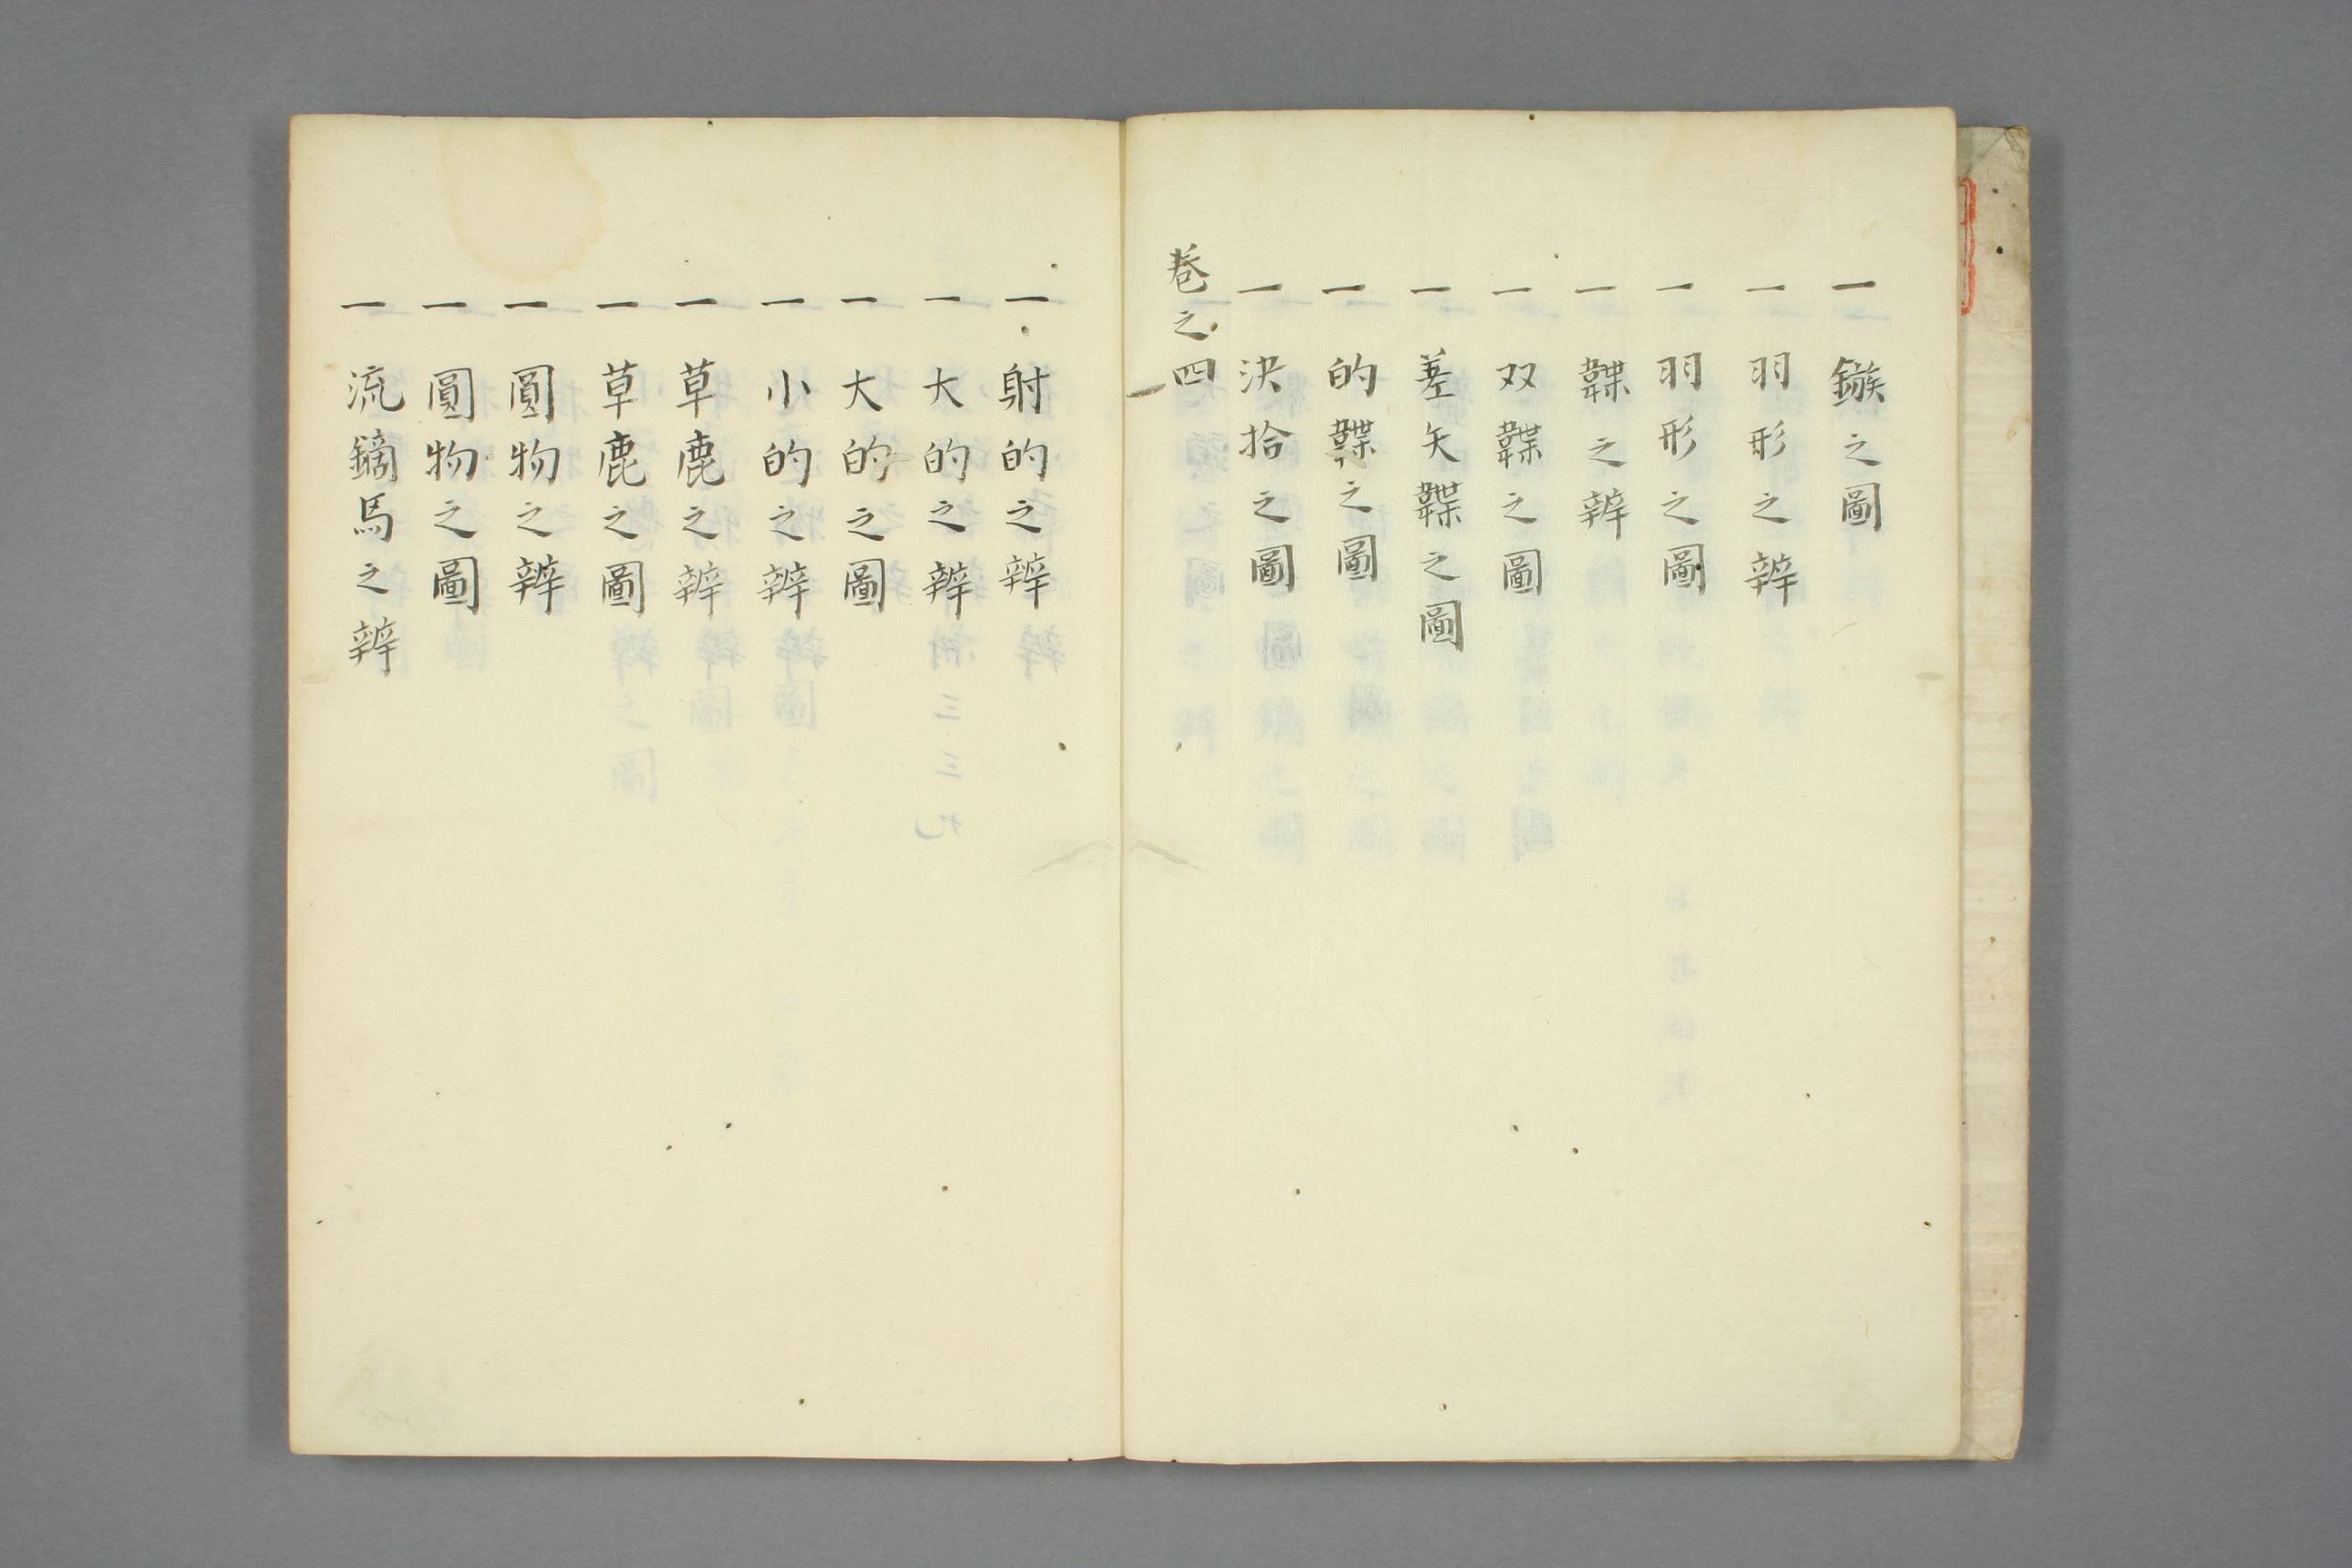 一 鏃之圖
一 羽形之辨
一 羽形之圖
一 韘之辨
一 双韘之圖
一 差矢韘之圖
一 的韘之圖
一 決拾之圖
巻之四
一 射的之辨
一 大的之辨
一 大的之圖
一 小的之辨
一 草鹿之辨
一 草鹿之圖
一 圓物之辨
一 圓物之圖
一 流鏑馬之辨